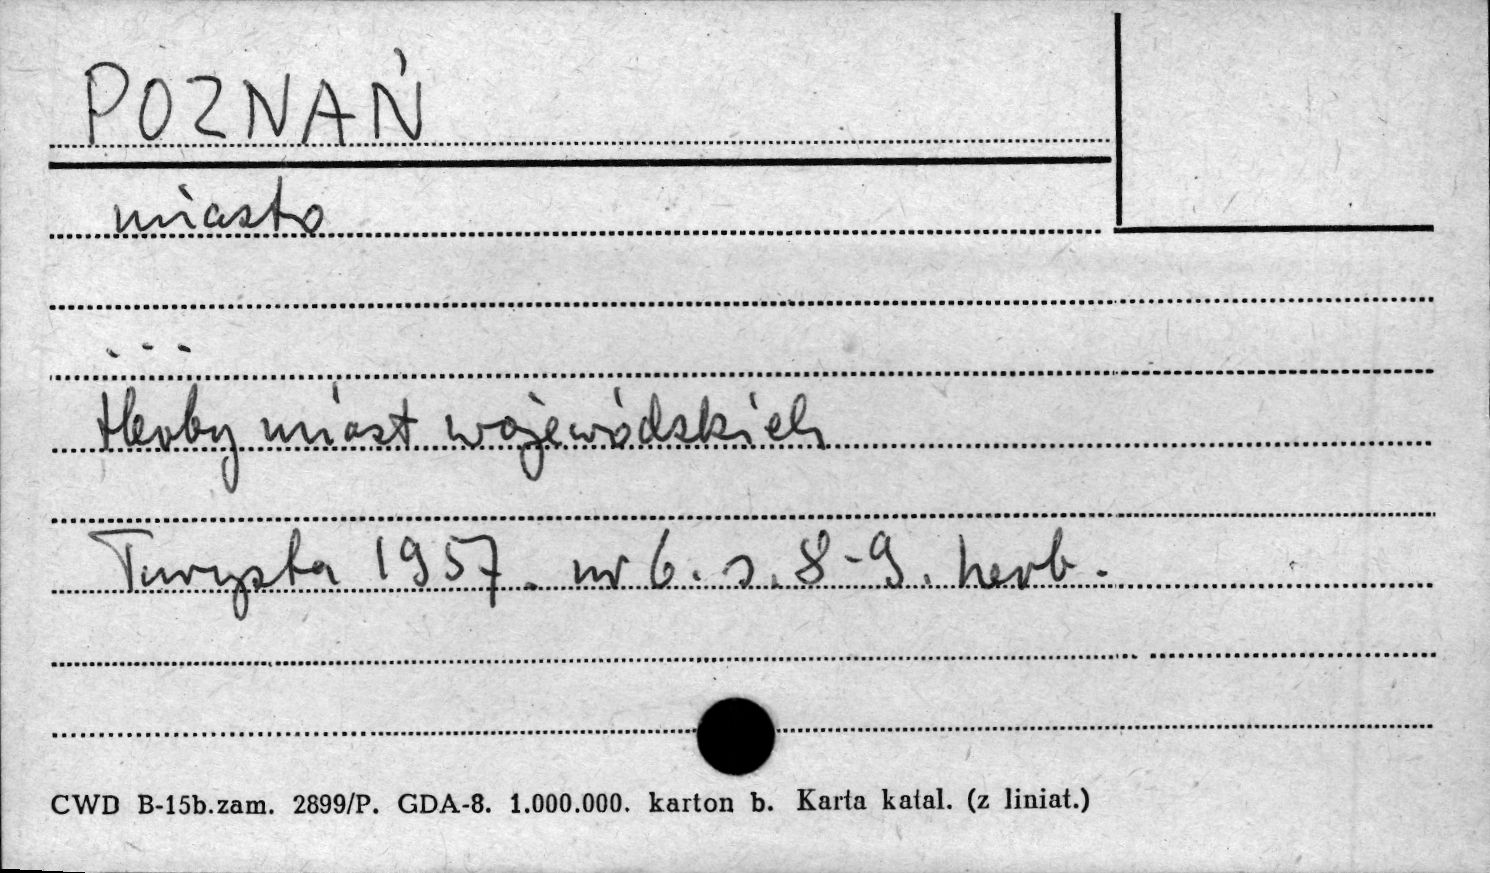 POZNAŃ
miasto
- - -
Herby miast wojewódskich
Turysta 1957. nr 6. s. 8-9. herb.
CWD B-15b.zam. 2899/P. GDA-8. 1.000.000. karton b. Karta katal. (z liniat.)